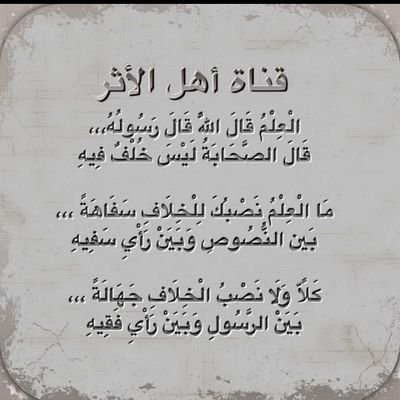 قناة أهل الأثر
الْعِلْمُ قَالَ اللَّهُ قَالَ رَسُولُهُ,,,
قَالَ الصَّحَابَةُ لَيْسَ خُلْفٌ فِيهِ
مَا الْعِلْمُ نَصْبُكَ لِلْخِلَافِ سَفَاهَةً ,,,
بَيْنَ النُّصُوصِ وَبَيْنَ رَأْيِ سَفِيهِ
كَلَّا وَلَا نَصْبُ الْخِلَافِ جَهَالَةً ,,,
بَيْنَ الرَّسُولِ وَبَيْنَ رَأْيِ فَقِيهِ